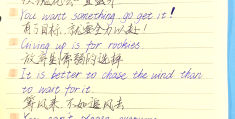 You want something. go get it!
有了目标，就要全力以赴！
Giving up is for rookies.
放弃是懦弱的选择
It is better to chase the wind than
to wait for it.
等风来，不如追风去